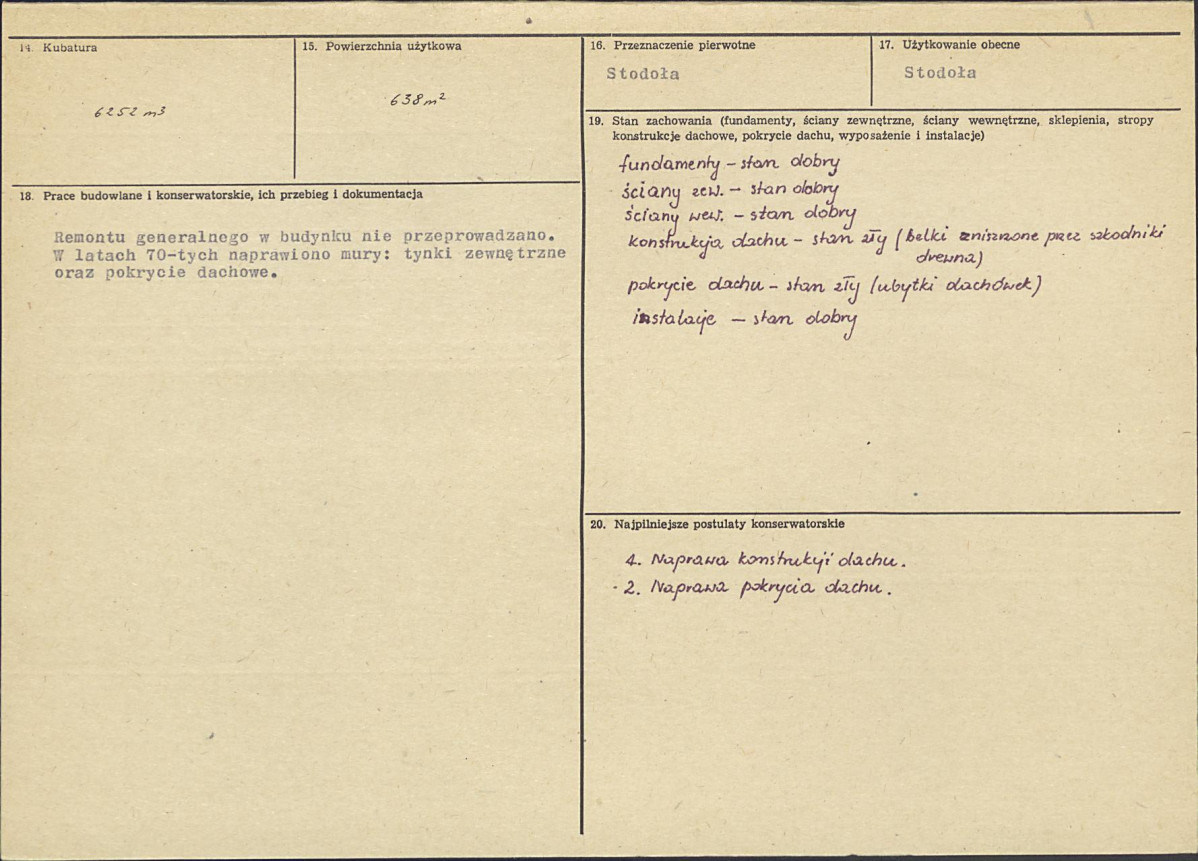 14. Kubatura
6252 m3
15. Powierzchnia użytkowa
638 m2
16. Przeznaczenie pierwotne
Stodoła
17. Użytkowanie obecne
Stodoła
18. Prace budowlane i konserwatorskie, ich przebieg i dokumentacja
Remontu generalnego w budynku nie przeprowadzano.
W latach 70-tych naprawiono mury: tynki zewnętrzne
oraz pokrycie dachowe.
19. Stan zachowania (fundamenty, ściany zewnętrzne, ściany wewnętrzne, sklepienia, stropy
konstrukcje dachowe, pokrycie dachu, wyposażenie i instalacje)
fundamenty – stan dobry
ściany zew. – stan dobry
ściany wew. – stan dobry
konstrukcja dachu – stan zły (belki zniszczone przez szkodniki
drewna)
pokrycie dachu – stan zły (ubytki dachówek)
instalacje – stan dobry
20. Najpilniejsze postulaty konserwatorskie
1. Naprawa konstrukcji dachu.
2. Naprawa pokrycia dachu.